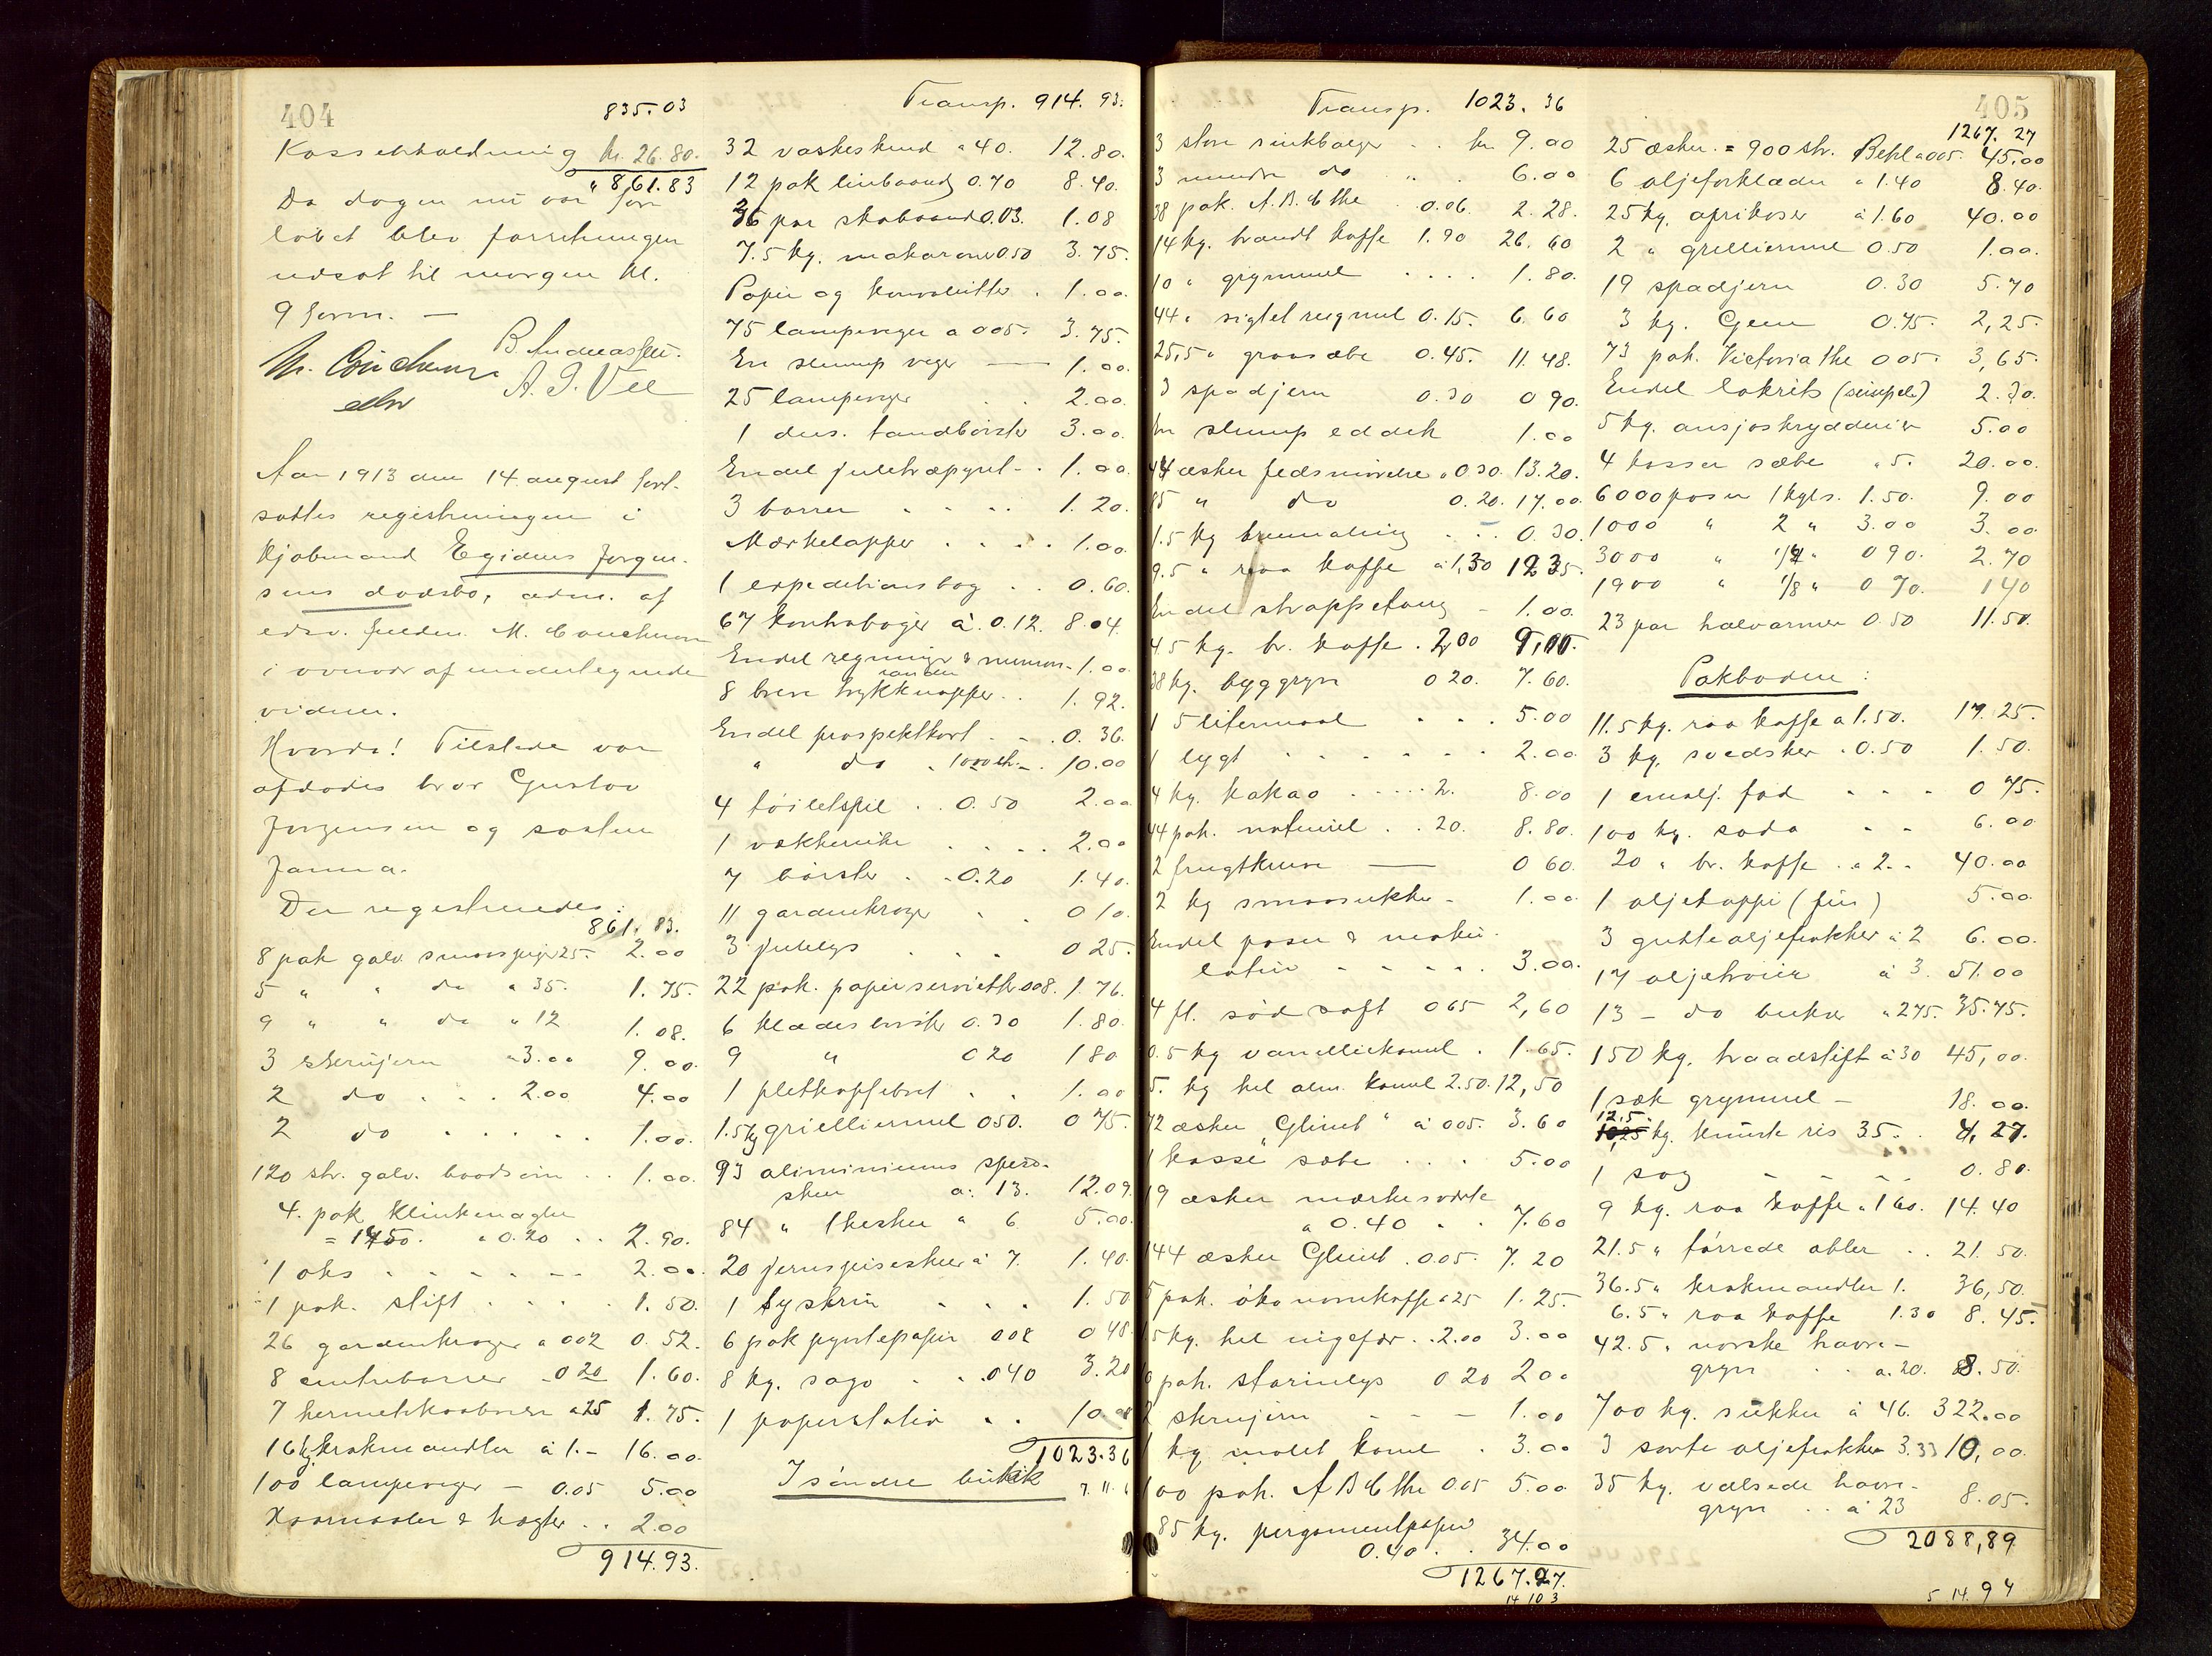 404
835.03
Kassebeholdning kr. 26.80.
" 861.83
Da dagen nu var for-
løbet blev forretningen
udsat til morgen kl.
9 form. —
B. Andreassen.
A. I. Vee
Aar 1913 den 14. august fort-
sattes registreringen i
kjøbmand Egideus Jørgen-
sens dødsbo, adm. af
edsv. fuldm. M.
i overvær af undertegnede
vidner.
Hvorda! Tilstede var
afdødes bror Gustav
Jørgensen og søsteren
Janna.
Der registreredes:
861.83.
8 pak galv. smaaspiger 25- 2.00
5 " " do " 35. 1.75.
9 " " do " 12 1.08.
3 skruejern " 3.00 9.00.
2 do . . . 2.00 4.00
2 do . . . . . 1.00.
120 stk. galv. baadsøm . . 1.00.
4. pak klinknagler
= 1450. a 0.20 . . 2.90.
1 øks . . . . . 2.00.
1 pak. stift . . . . 1.50.
26 gardinkroger a 002 0.52.
8 centruborrer - 020 1.60.
7 hermetikaabnere a 25 1.75.
16 kg krakmandler à 1.- 16.00.
100 lampeveger - 0.05 5.00
Haarnaaler & hægter . . 2.00
914.93.
Transp. 914.93.
32 vaskeskind a 40. 12.80.
12 pak linbaand 0.70 8.40.
36 par skobaand 0.03. 1.08
7.5 kg. makaroni 0.50 3.75.
Papir og konvolutter . 1.00.
75 lampeveger a 005- 3.75.
En slump veger — 1.00.
25 lampeveger . . 2.00.
1 dus. tandbørster 3.00.
Endel juletræpynt - . 1.00.
3 borrer . . . . 1.20.
Mærkelapper . . . . 1.00.
1 expeditionsbog . . 0.60.
67 kontrabøger à 0.12. 8.04.
Endel regninger & memoran- 1.00.
randen
8 breve trykknapper . . 1.92.
Endel prospektkort . . . 0.36.
" do . 1000 stk - . 10.00
4 toiletspeil . . 0.50 2.00
1 vækkerurh . . . . 2.00
7 børster . . 0.20 1.40.
11 gardinkroger . . 010.
3 julelys . . . 025.
22 pak. papirservietter 008. 1.76.
6 klædesbørster 0.30 1.80.
9 " 020 180
1 pletkaffebret . . 1.00
1.5 kg grielliermel 050. 075.
93 aliminiums spise-
skeer a: 13. 12.09.
84 " theskeer a 6. 5.00.
20 jernspiseskeer à 7. 1.40.
1 syskrin . . . 1.50
6 pak pyntepapir 008 048.
8 kg. sago . . . 040 3.20
1 papirstativ . . 10.00
1023.36
I søndre butik
Transp. 1023.36
3 store sinkbaljer . . kr 9.00
3 mindre do " . 6.00
38 pak. A.B.C the . 0.06. 2.28.
14 kg. brændt kaffe 1.90 26.60
10 " grynmel . . . . 1.80.
44 " sigtet rugmel 0.15. 6.60
25,5 " grønsæbe 0.45. 11.48.
3 spadjern 0.30 090.
En slump eddik 1.00
44 æsker fedtsmørelse a 030. 13.20.
85 " do 0.20. 17.00.
1.5 kg . . . 0.30.
9.5 " raa kaffe à 1,30 1235.
Endel strappetøng - 1.00.
4.5 kg. br. kaffe . 2,00 9,00.
38 kg. byggryn 020. 7.60.
1 5 litermaal . . . 5.00
1 lygt . . . . . . 2.00.
4 kg. kakao . . . . . 2. 8.00
44 pak. naturel . . 20. 8.80.
2 frugtkurve — 060.
2 kg smaasukker - 1.00.
Endel poser & maku-
latur . . . . . 3.00.
4 fl. sød saft 065 2,60
0.5 kg vandliekanel . 1.65.
5. kg hel alm. kanel 2.50. 12,50
72 æsker "Glimt" à 005. 3.60
1 kasse sæbe . . . 5.00
19 æsker mærkesværte
a 0.40 . . 7.60
144 æsker Glimt . 005. 7.20
5 pak. økonomkaffe a 25 1.25.
1.5 kg. hel ingefær . . 2.00 3.00
10 pak. starinlys 020 200
2 skruejern - - - 1.00
1 kg malet kanel . 3.00
100 pak. A B C the 005 5.00
85 kg. pergamentpapir
0.40 . . 34.00
1267.27.
14 10 3
405
1267.27
25 æsker = 900 stk. a 005. 45.00
6 oljeforklæder " 1.40 8.40.
25 kg. aprikoser à 1.60 40.00
2 " grelliermel 0.50 1.00.
19 spadjern 0.30 5.70
3 kg. Gem 0.75. 2,25.
73 pak. Victoria the 005. 3,65.
Endel lakrits (simpel) 2.30.
5 kg. ansjoskrydderier 5.00
4 kasser sæbe " 5. 20.00.
6000 poser 1 kgs. 1.50. 9.00
1000 " 2 " 3.00 3.00
3000 " 1/4 " 090. 2.70
1900 " 1/8 " 070. 140
23 par halvarmer 0.50 11.50.
Pakboden:
11.5 kg. raa kaffe a 1.50. 17.25.
3 kg. svedsker . 0.50 1.50.
1 emalj. fad - - - 075.
100 kg. soda - - 6.00
20 " br. kaffe . a 2. - 40.00
1 oljekappe (fin) 5.00.
3 gutteoljefrakker à 2 6.00.
17 oljetrøier à 3. 51.00
13 - do bukser a 275. 35.75.
150 kg. traadstift à 30 45,00.
1 sæk grynmel - 18.00.
12.5.
kg. knuste ris 35. . 4,27.
1 sag - - - - 0.80.
9 kg. raa kaffe a 160. 14.40
21.5 " tørrede æbler . . 21.50.
36.5 " krakmandler 1. 36,50.
6.5 " raa kaffe 1.30 8.45.
42.5 " norske havre-
gryn . . a. 20. 8.50.
700 kg. sukker à 46. 322.00
3 sorte oljefrakker 3.33 10,00.
35 kg. valsede havre-
gryn . . à 23 8.05.
2088,89
5 14.94